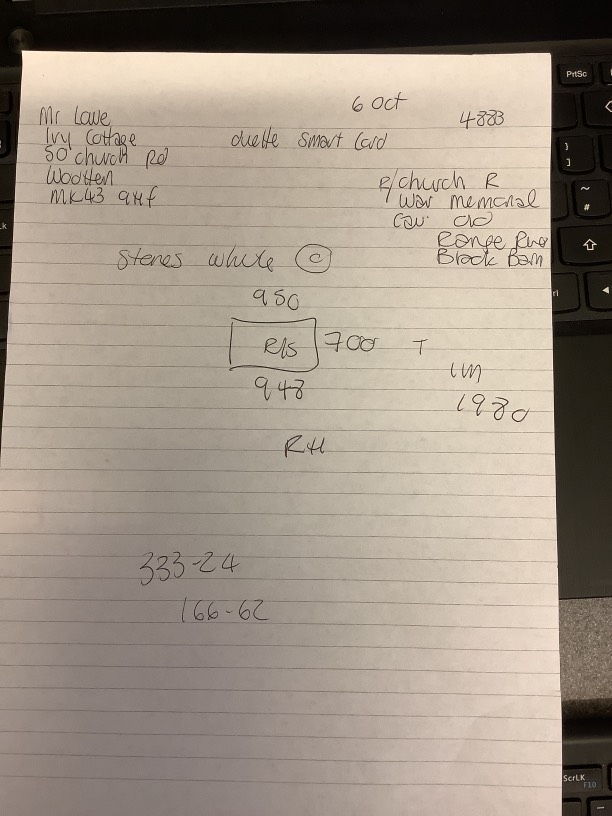 6 Oct
4883
Mr Lowe
Ivy Cottage
duette Smart Card
50 church Rd
Wootten
MK43 9HF
P/church R
War memorial
Range Rive
Black Barn
Stenes white C
950
R/S 700 T
1m
948
1980
RH
333-24
166-62
PrtSc
ScrLK
F10